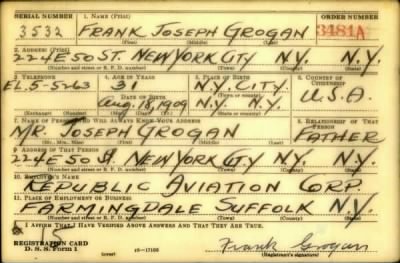 SERIAL NUMBER 1. NAME (Print) ORDER NUMBER
3532 FRANK JOSEPH GROGAN 3481A
(First) (Middle) (Last)
2. ADDRESS (Print)
224 E 50 ST. NEW YORK CITY N.Y. N.Y.
(Number and street or R. F. D. number) (Town) (County) (State)
3. TELEPHONE 4. AGE IN YEARS 5. PLACE OF BIRTH 6. COUNTRY OF CITIZENSHIP
EL. 5-5263 31 N.Y. CITY.
DATE OF BIRTH
Aug. 18, 1909 N.Y. U.S.A.
(Exchange) (Number) (Mo.) (Day) (Yr.) (State or country)
7. NAME OF PERSON WHO WILL ALWAYS KNOW YOUR ADDRESS 8. RELATIONSHIP OF THAT PERSON
MR. JOSEPH GROGAN FATHER
(Mr., Mrs., Miss) (First) (Middle) (Last)
9. ADDRESS OF THAT PERSON
224 E 50 St. NEW YORK CITY N.Y. N.Y.
(Number and street or R. F. D. number) (Town) (County) (State)
10. EMPLOYER'S NAME
REPUBLIC AVIATION CORP.
11. PLACE OF EMPLOYMENT OR BUSINESS
FARMINGDALE SUFFOLK N.Y.
(Number and street or R. F. D. number) (Town) (County) (State)
I AFFIRM THAT I HAVE VERIFIED ABOVE ANSWERS AND THAT THEY ARE TRUE.
REGISTRATION CARD
D. S. S. Form 1 (over) 16—17105 Frank Grogan
(Registrant's signature)